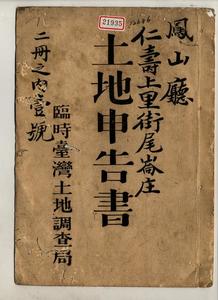 鳳山廳
仁壽上里街尾崙庄
土地申告書
二冊之內壹號
臨時臺灣土地調查局
21935